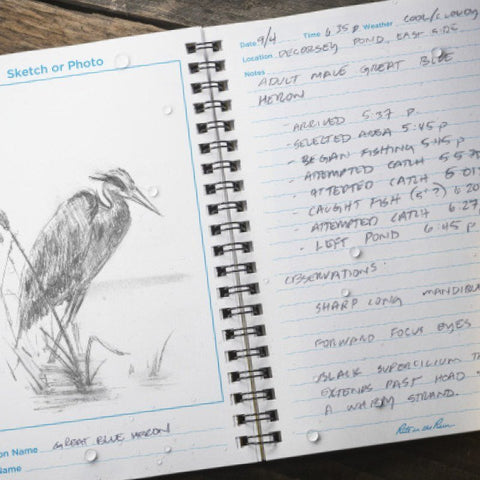 Sketch or Photo
on Name GREAT BLUE HERON
Name
Date 9/4 Time 6:35 P Weather COOL/CLOUDY
Location DECORSEY POND, EAST SIDE
Notes
ADULT MALE GREAT BLUE
HERON
- ARRIVED 5:37 P
- SELECTED AREA 5:45 P
- BEGAN FISHING 5:45 P
- ATTEMPTED CATCH 5:5
- ATTEPTED CATCH 6:01
- CAUGHT FISH (5"?) 6:20
- ATTEMPTED CATCH 6:27
- LEFT POND 6:45 P
OBSERVATIONS:
SHARP LONG MANDIBU
FORWARD FOCUS EYES
BLACK SUPERCILIUM
EXTENDS PAST HEAD
A WHISPY STRAND.
Rite in the Rain